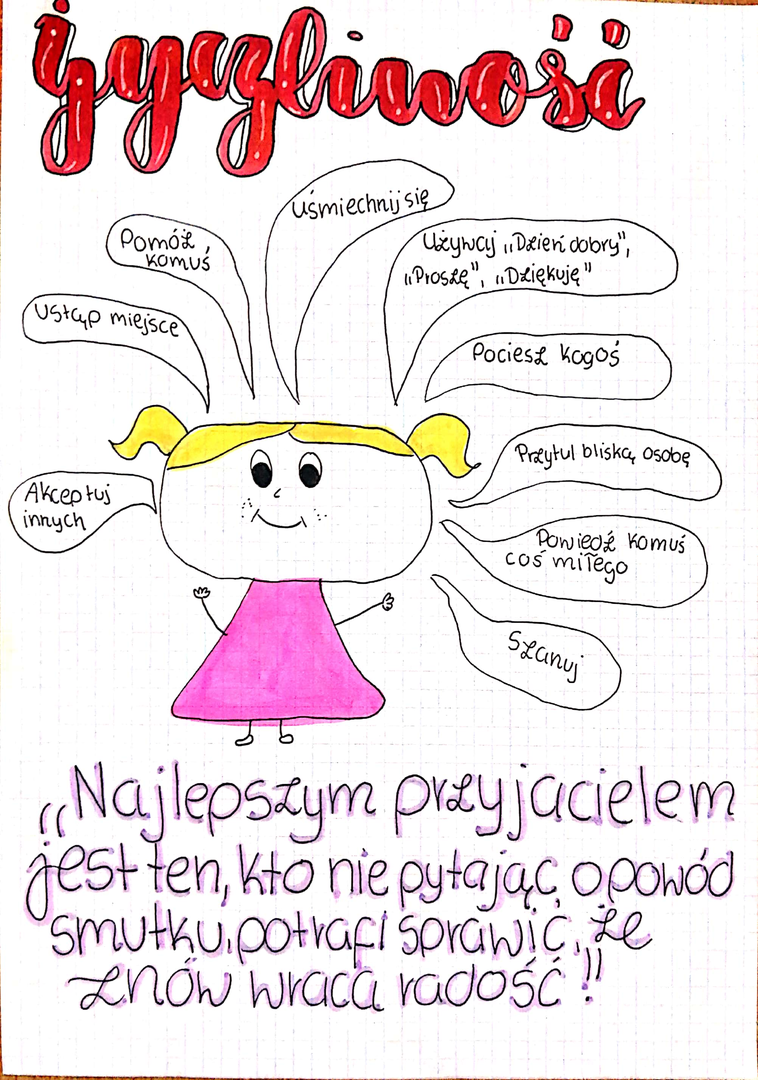 życzliwość
Uśmiechnij się
Pomóż
komuś
Używaj „Dzień dobry",
„Proszę", „Dziękuję"
Ustąp miejsce
Pociesz kogoś
Przytul bliską osobę
Akceptuj
innych
Powiedz komuś
coś miłego
Szanuj
„Najlepszym przyjacielem
jest ten, kto nie pytając o powód
smutku, potrafi sprawić, że
znów wraca radość"